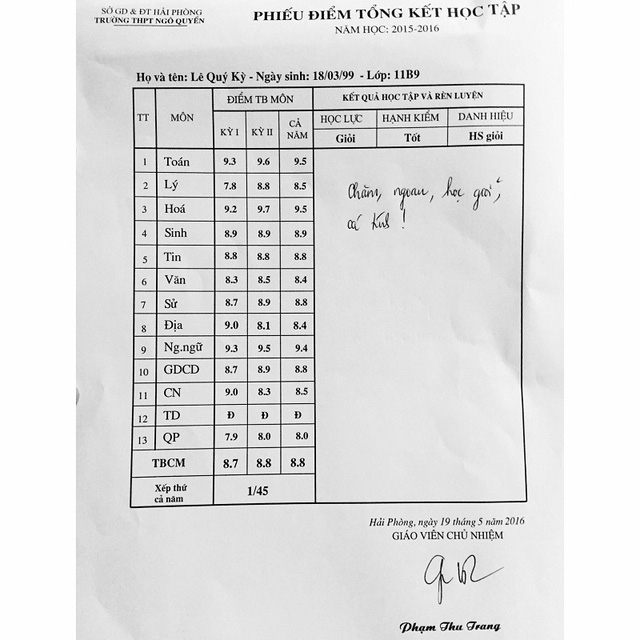 SỞ GD & ĐT HẢI PHÒNG
TRƯỜNG THPT NGÔ QUYỀN
PHIẾU ĐIỂM TỔNG KẾT HỌC TẬP
NĂM HỌC: 2015-2016
Họ và tên: Lê Quý Kỳ - Ngày sinh: 18/03/99 - Lớp: 11B9
TT MÔN ĐIỂM TB MÔN KẾT QUẢ HỌC TẬP VÀ RÈN LUYỆN
KỲ I KỲ II CẢ NĂM HỌC LỰC HẠNH KIỂM DANH HIỆU
Giỏi Tốt HS giỏi
1 Toán 9.3 9.6 9.5
2 Lý 7.8 8.8 8.5
3 Hoá 9.2 9.7 9.5
4 Sinh 8.9 8.9 8.9
5 Tin 8.8 8.8 8.8
6 Văn 8.3 8.5 8.4
7 Sử 8.7 8.9 8.8
8 Địa 9.0 8.1 8.4
9 Ng.ngữ 9.3 9.5 9.4
10 GDCD 8.7 8.9 8.8
11 CN 9.0 8.3 8.5
12 TD Đ Đ Đ
13 QP 7.9 8.0 8.0
TBCM 8.7 8.8 8.8
Xếp thứ cả năm 1/45
Chăm, ngoan, học giỏi,
cá tính!
Hải Phòng, ngày 19 tháng 5 năm 2016
GIÁO VIÊN CHỦ NHIỆM
Phạm Thu Trang